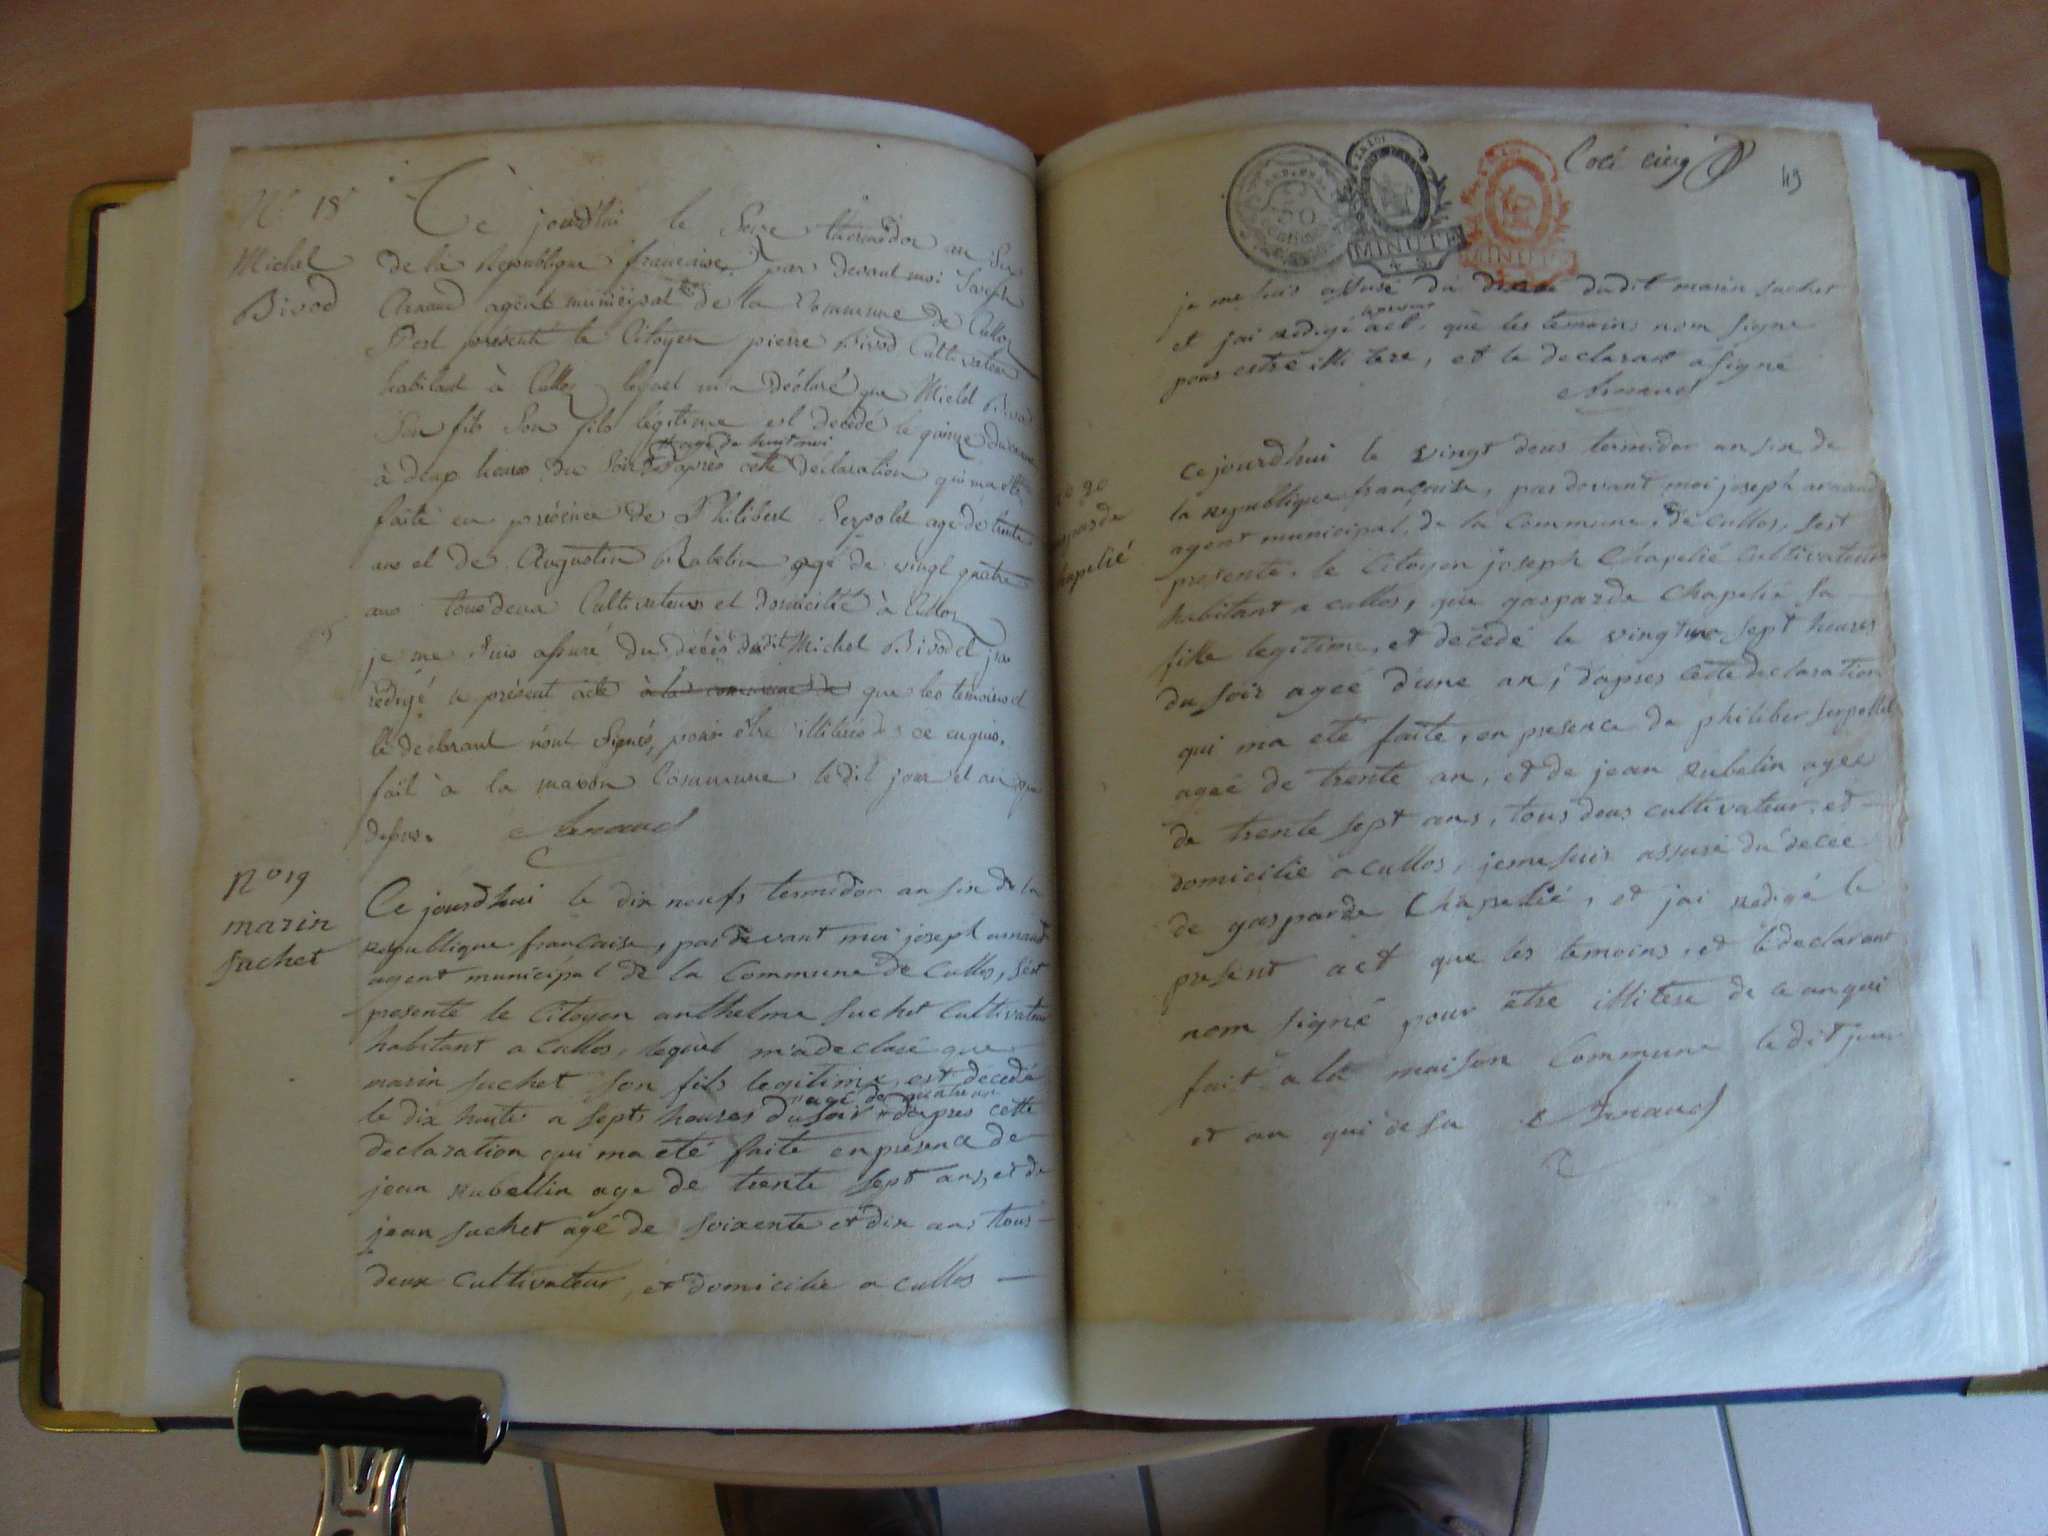 N° 18
Michel
Bivod
Ce jourd'hui le Seize thermidor an Six
de la République française, par devant moi Joseph
Arnaud agent municipal de la Commune de Culloz
S'est présenté le Citoyen pierre Bivod Cultivateur
habitant à Culloz lequel m'a déclaré que Michel Bivod
Son fils Son fils légitime est décédé le quinze du courant
agé de huit moi
à deux heures du Soir d'après cette déclaration qui ma été
faite en présence de Philibert Serpolet agé de trente
ans et de Augustin Rabelin agé de vingt quatre
ans tous deux Cultivateurs et domicilié à Culloz
je me Suis assuré du décès dudit Michel Bivod et jai
rédigé le présent acte à la commune de que les temoins et
le déclarant n'ont Signés, pour être illitérés de ce enquis.
fait à la maison Commune ledit jour et an que
dessus. Arnaud
N° 19
marin
suchet
Ce jourd'hui le dix neufs termidor an six de la
republique francaise, par devant moi joseph arnaud
agent municipal de la Commune de Cullos, s'est
presenté le Citoyen anthelme suchet Cultivateur
habitant a Cullos, lequel m'a declaré que
marin suchet son fils legitime, est décedé
agé de quatre an
le dix huite a sept heures du soir d'apres cette
declaration qui ma eté faite en presence de
jean rubellin age de trente sept ans, et de
jean suchet agé de soixente et dix ans tous
deux cultivateur, et domicilie a cullos
50
LA LOI
MINUTE
LA LOI
MINUTE
cinq
49
je me suis assusé du dudit marin suchet
le present
et jai redigé act, que les temoins nom signe
pour estre illi tere, et le declarant a signé
Arnaud
20
gasparde
Chapelié
Ce jourd'hui le vingt deus termidor an six de
la republique française, par devant moi joseph arnaud
agent municipal, de la Commune, de cullos, s'est
presente, le Citoyen joseph Chapelié Cultivateur
habitant a cullos, que gasparde Chapelié sa
fille legitime, et décedé le vingtune sept heures
du soir ageé d'une an, d'apres cette declaration
qui ma eté faite, en presence de philiber serpollet
ageé de trente an, et de jean rubelin agee
de trente sept ans, tous deus cultivateur, et
domicilié a cullos, je me suis assuré du decee
de gasparde Chapelié, et jai redigé le
present act que les temoins, et le declarant
nom signé pour être illitere de ce anqui
fait a la maison Commune ledit jour
et an qui desu Arnaud